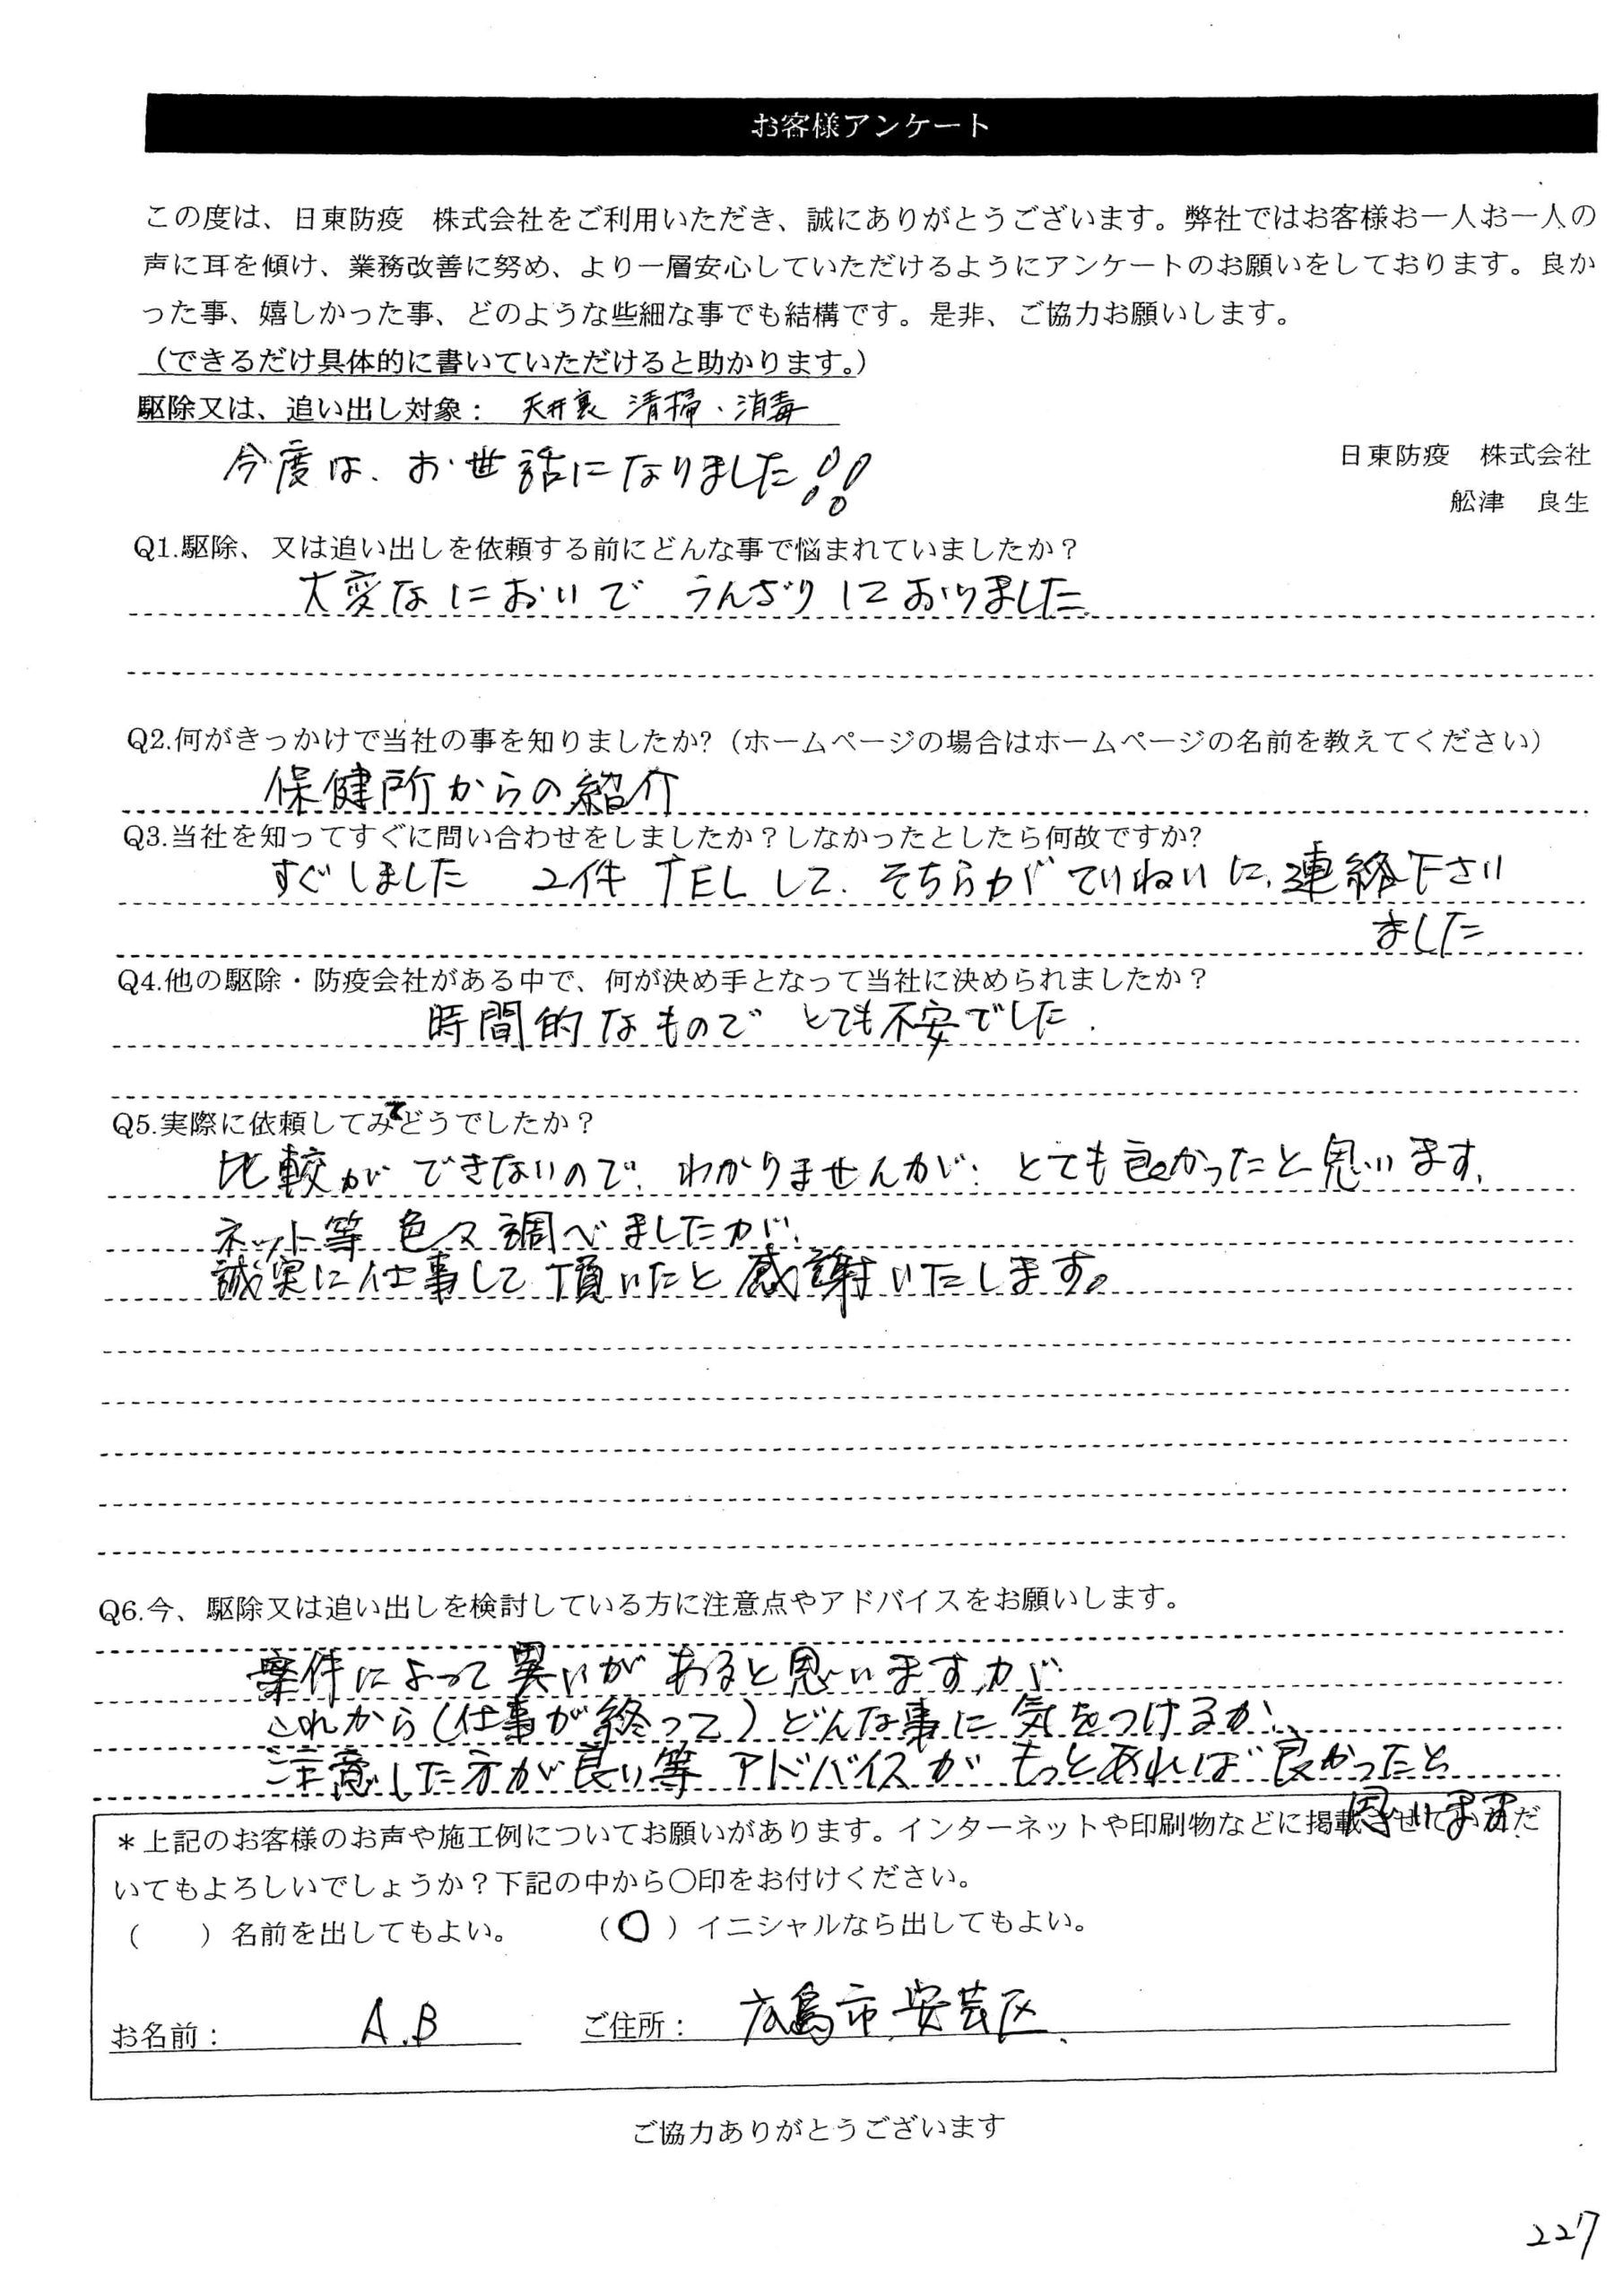 お客様アンケート
この度は、日東防疫　株式会社をご利用いただき、誠にありがとうございます。弊社ではお客様お一人お一人の
声に耳を傾け、業務改善に努め、より一層安心していただけるようにアンケートのお願いをしております。良か
った事、嬉しかった事、どのような些細な事でも結構です。是非、ご協力お願いします。
（できるだけ具体的に書いていただけると助かります。）
駆除又は、追い出し対象：　天井裏 清掃・消毒
今度は、お世話になりました!!
日東防疫　株式会社
舩津　良生
Q1.駆除、又は追い出しを依頼する前にどんな事で悩まれていましたか？
大変なにおいで うんざりしておりました.
Q2.何がきっかけで当社の事を知りましたか?（ホームページの場合はホームページの名前を教えてください）
保健所からの紹介
Q3.当社を知ってすぐに問い合わせをしましたか？しなかったとしたら何故ですか?
すぐしました 2件 TELして、そちらがていねいに、連絡下さい
ました
Q4.他の駆除・防疫会社がある中で、何が決め手となって当社に決められましたか？
時間的なもので とても不安でした.
Q5.実際に依頼してみてどうでしたか？
比較ができないので、わかりませんが、とても良かったと思います.
ネット等 色々調べましたが、
誠実に仕事して頂いたと感謝いたします。
Q6.今、駆除又は追い出しを検討している方に注意点やアドバイスをお願いします。
案件によって異いがあると思いますが、
これから(仕事が終って)どんな事に気をつけるか、
注意した方が良い等 アドバイスが もっとあれば良かったと
思います.
＊上記のお客様のお声や施工例についてお願いがあります。インターネットや印刷物などに掲載させていただ
いてもよろしいでしょうか？下記の中から〇印をお付けください。
（　　）名前を出してもよい。　（〇）イニシャルなら出してもよい。
お名前： A.B ご住所： 広島市安芸区.
ご協力ありがとうございます
227